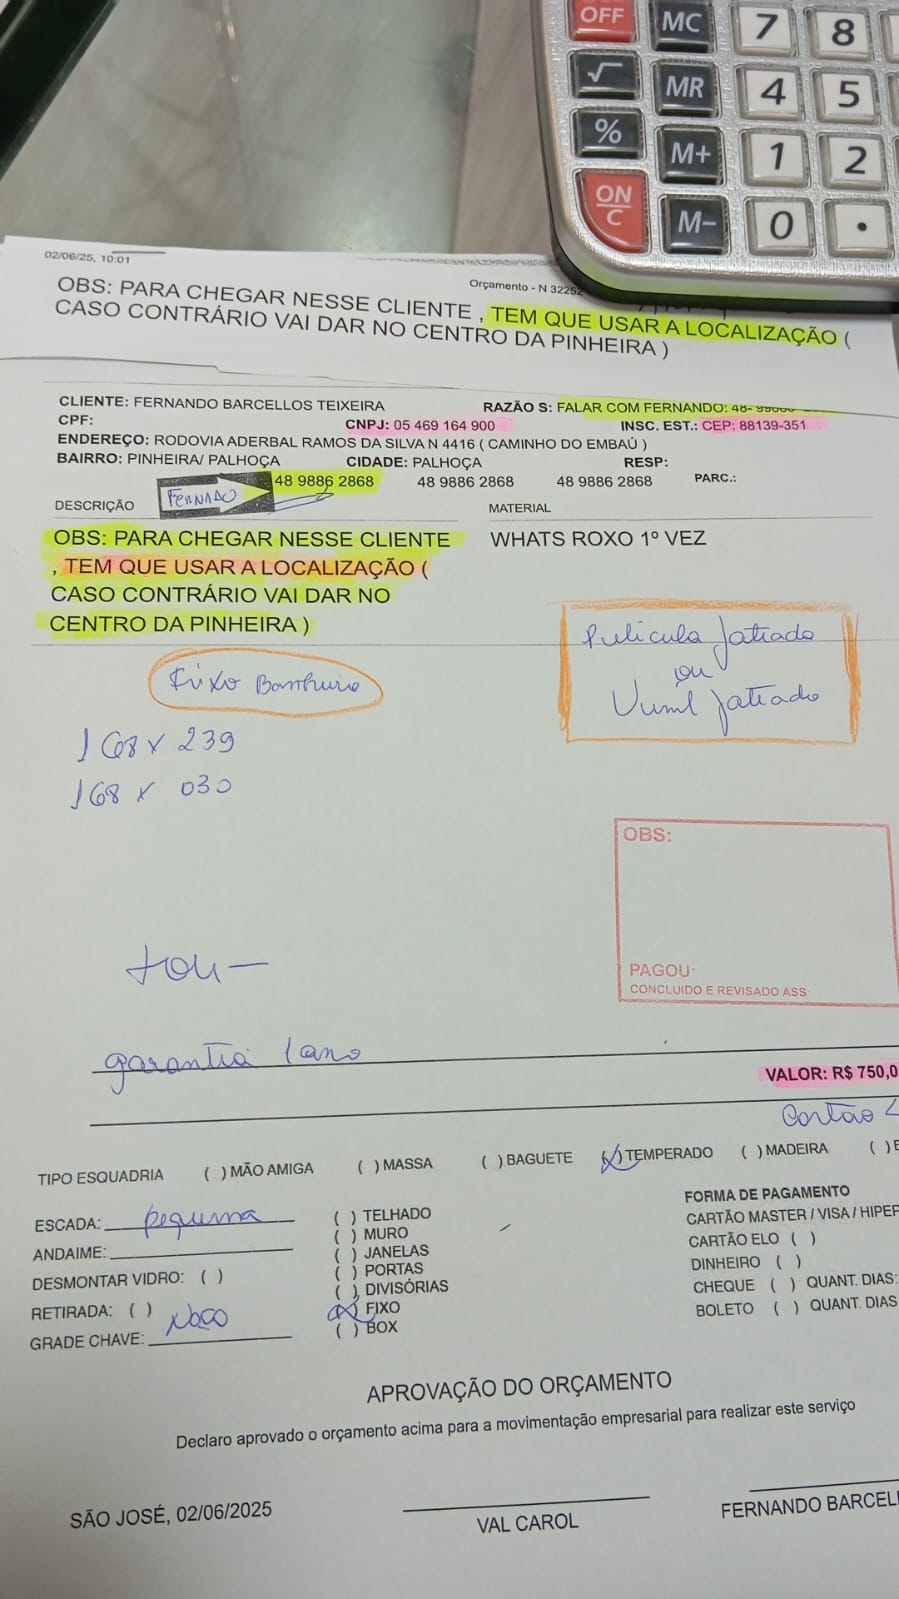 OFF MC 7 8
√ MR 4 5
% M+ 1 2
ON/C M- 0 .
02/06/25, 10:01
Orçamento - N 32252
OBS: PARA CHEGAR NESSE CLIENTE , TEM QUE USAR A LOCALIZAÇÃO (
CASO CONTRÁRIO VAI DAR NO CENTRO DA PINHEIRA )
CLIENTE: FERNANDO BARCELLOS TEIXEIRA RAZÃO S: FALAR COM FERNANDO: 48-
CPF: CNPJ: 05 469 164 900 INSC. EST.: CEP: 88139-351
ENDEREÇO: RODOVIA ADERBAL RAMOS DA SILVA N 4416 ( CAMINHO DO EMBAÚ )
BAIRRO: PINHEIRA/ PALHOÇA CIDADE: PALHOÇA RESP:
FERNADO 48 9886 2868 48 9886 2868 48 9886 2868 PARC.:
DESCRIÇÃO MATERIAL
OBS: PARA CHEGAR NESSE CLIENTE WHATS ROXO 1º VEZ
, TEM QUE USAR A LOCALIZAÇÃO (
CASO CONTRÁRIO VAI DAR NO
CENTRO DA PINHEIRA )
Película jatiado
ou
jatiado
Fixo Banheiro
168 x 239
168 x 030
OBS:
PAGOU:
CONCLUIDO E REVISADO ASS
garantia 1 ano
VALOR: R$ 750,0
Cartão
TIPO ESQUADRIA ( ) MÃO AMIGA ( ) MASSA ( ) BAGUETE (X) TEMPERADO ( ) MADEIRA ( ) E
ESCADA: pequena ( ) TELHADO
ANDAIME: ( ) MURO
DESMONTAR VIDRO: ( ) ( ) JANELAS
RETIRADA: ( ) ( ) PORTAS
GRADE CHAVE: ( ) DIVISÓRIAS
(X) FIXO
( ) BOX
FORMA DE PAGAMENTO
CARTÃO MASTER / VISA / HIPER
CARTÃO ELO ( )
DINHEIRO ( )
CHEQUE ( ) QUANT. DIAS:
BOLETO ( ) QUANT. DIAS
APROVAÇÃO DO ORÇAMENTO
Declaro aprovado o orçamento acima para a movimentação empresarial para realizar este serviço
SÃO JOSÉ, 02/06/2025
VAL CAROL
FERNANDO BARCEL